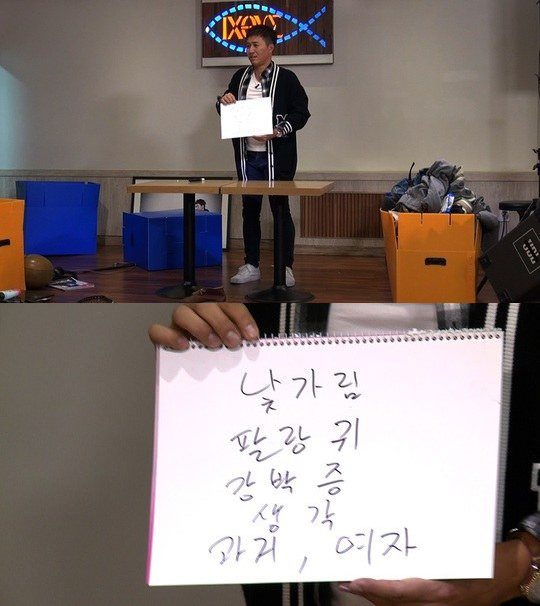 ΙΧΘΥΣ
낯가림
팔랑귀
강박증
생각
과거, 여자